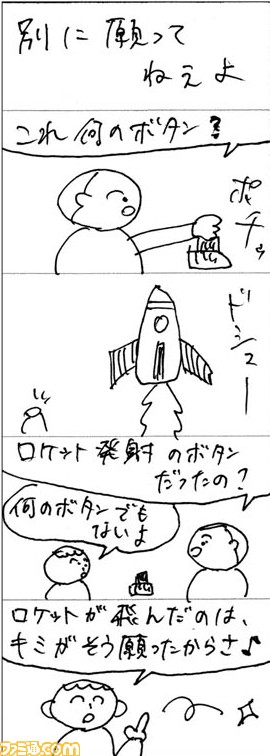 別に願って
ねえよ
これ何のボタン?
ポチッ
ドシュー
ロケット発射のボタン
だったの?
何のボタンでも
ないよ
ロケットが飛んだのは、
キミがそう願ったからさ♪
ファミ通.com